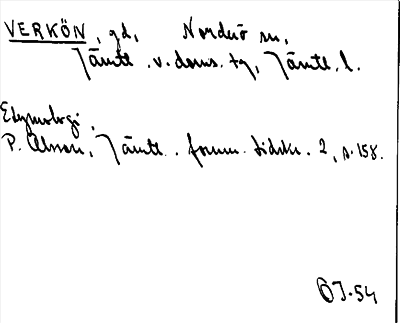 VERKÖN, gd, Norderö sn,
Jämtl. v. doms. tg, Jämtl. l.
Etymologi,
P. Olsson, Jämtl. fornm. tidskr. 2, s. 158.
ÖJ-54